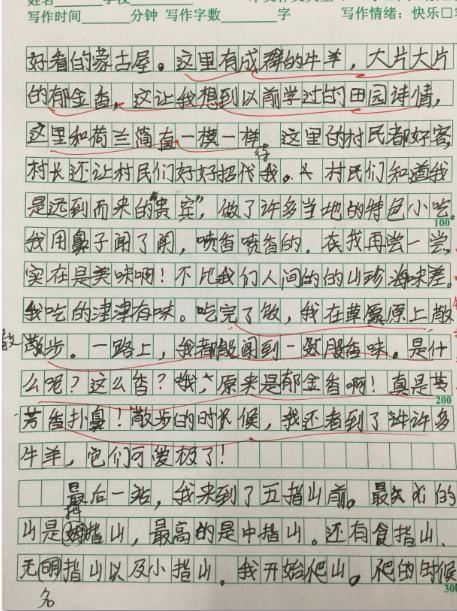 写作时间 分钟 写作字数 字 写作情绪：快乐□
好看的蒙古屋。这里有成群的牛羊，大片大片
的郁金香，这让我想到以前学过的田园诗情，
这里和荷兰简直一模一样 这里的村民都好客，
村长还让村民们好好招待我。村民们知道我
是远到而来的“贵宾”，做了许多当地的特色小吃。
100
我用鼻子闻了闻，喷香喷香的。在我再尝一尝，
实在是美味啊！不比我们人间的的山珍海味差。
我吃的津津有味。吃完了饭，我在草原上散
散步。一路上，我都能闻到一股香味。是什
么呢？这么香？哦，原来是郁金香啊！真是
200
芳香扑鼻！散步的时候，我还看到了许多
牛羊，它们可爱极了！
最后一站，我来到了五指山前。最 的
山是拇指山，最高的是中指山。还有食指山、
无名指山以及小指山。我开始爬山。爬的时候
300